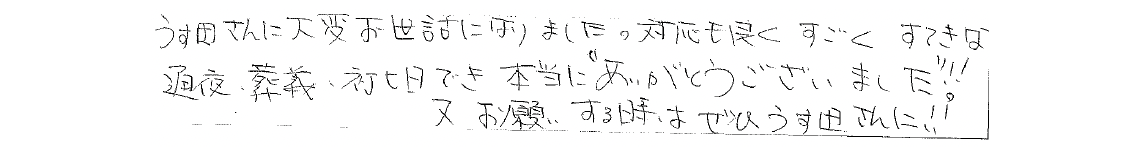 うす田さんに大変お世話になりました。対応も良く すごく すてきな
通夜、葬義、初七日でき 本当に"ありがとうございました"!!!
又 お願いする時は ぜひ うす田さんに!!